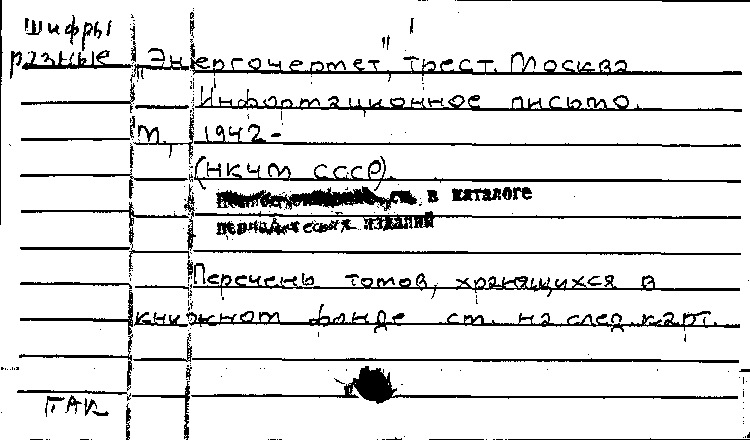 Шифры
разные
"Энергочермет", трест. Москва
Информационное письмо.
М., 1942-
(НКЧМ СССР).
см. в каталоге
периодических изданий
Перечень томов, хранящихся в
книжном фонде см. на след. карт.
ГАК